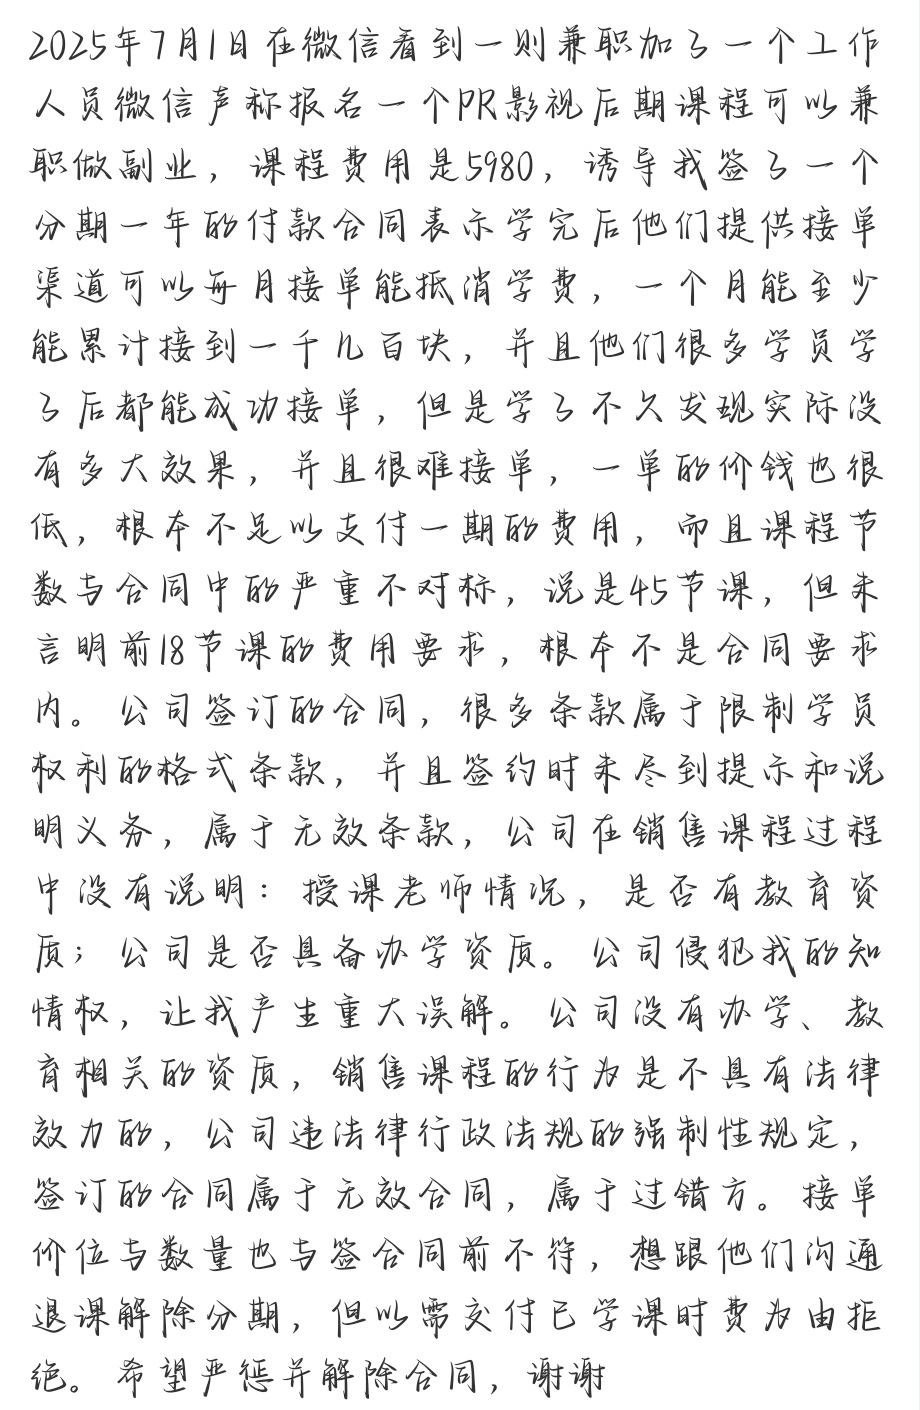 2025年7月1日在微信看到一则兼职加了一个工作
人员微信声称报名一个PR影视后期课程可以兼
职做副业，课程费用是5980，诱导我签了一个
分期一年的付款合同表示学完后他们提供接单
渠道可以每月接单能抵消学费，一个月能至少
能累计接到一千几百块，并且他们很多学员学
了后都能成功接单，但是学了不久发现实际没
有多大效果，并且很难接单，一单的价钱也很
低，根本不足以支付一期的费用，而且课程节
数与合同中的严重不对标，说是45节课，但未
言明前18节课的费用要求，根本不是合同要求
内。公司签订的合同，很多条款属于限制学员
权利的格式条款，并且签约时未尽到提示和说
明义务，属于无效条款，公司在销售课程过程
中没有说明：授课老师情况，是否有教育资
质；公司是否具备办学资质。公司侵犯我的知
情权，让我产生重大误解。公司没有办学、教
育相关的资质，销售课程的行为是不具有法律
效力的，公司违法律行政法规的强制性规定，
签订的合同属于无效合同，属于过错方。接单
价位与数量也与签合同前不符，想跟他们沟通
退课解除分期，但以需交付已学课时费为由拒
绝。希望严惩并解除合同，谢谢